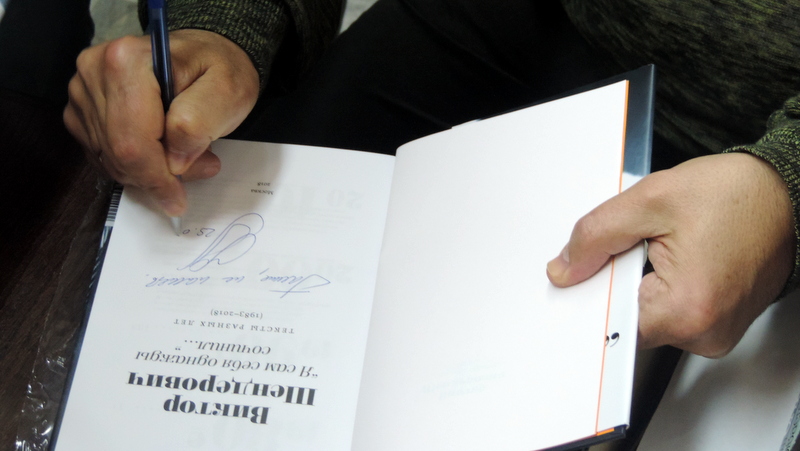 Виктор
Шендерович
“Я сам себя однажды
сочинил…”
ТЕКСТЫ РАЗНЫХ ЛЕТ
(1983–2018)
Москва
2018